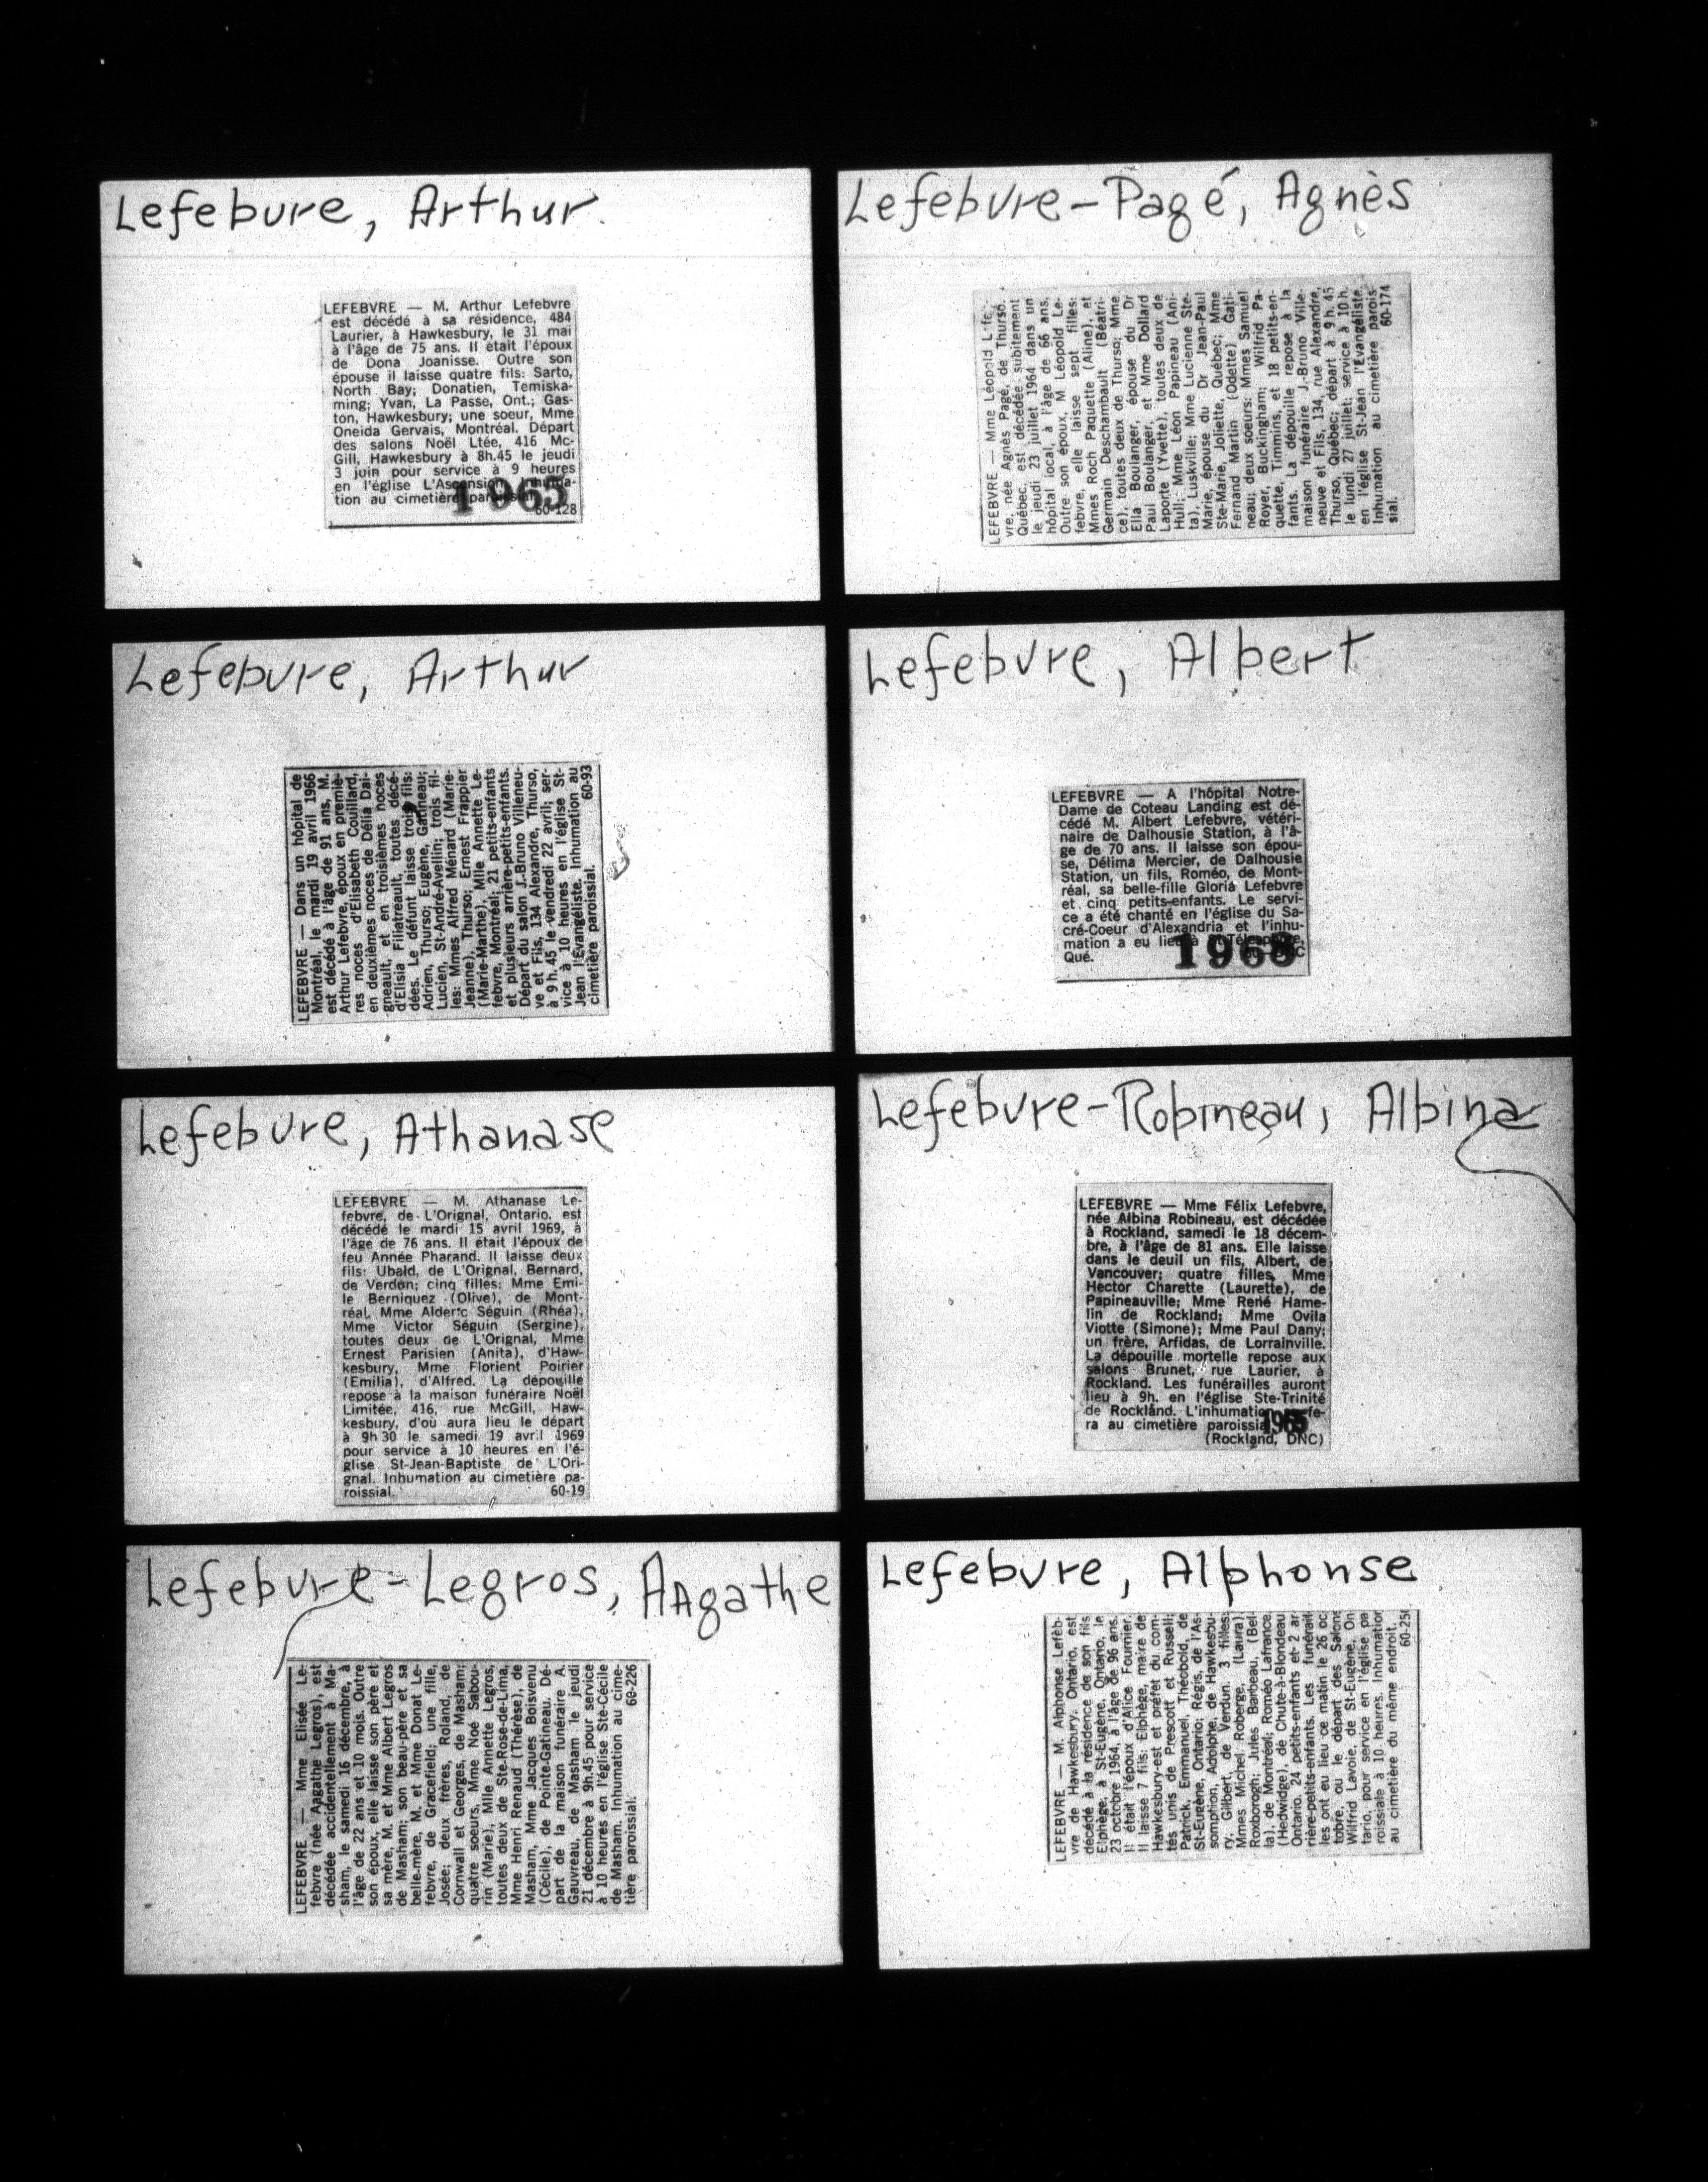 Lefebvre, Arthur
LEFEBVRE — M. Arthur Lefebvre
est décédé à sa résidence, 484
Laurier, à Hawkesbury, le 31 mai
à l'âge de 75 ans. Il était l'époux
de Dona Joanisse. Outre son
épouse il laisse quatre fils: Sarto,
North Bay; Donatien, Temiska-
ming; Yvan, La Passe, Ont.; Gas-
ton, Hawkesbury; une soeur, Mme
Oneida Gervais, Montréal. Départ
des salons Noël Ltée, 416 Mc-
Gill, Hawkesbury à 8h.45 le jeudi
3 juin pour service à 9 heures
en l'église L'Ascension. Inhuma-
tion au cimetière paroissial.
1965
60-128
Lefebvre-Pagé, Agnès
LEFEBVRE — Mme Léopold Lefe-
vre, née Agnès Pagé, de Thurso,
Québec, est décédée subitement
le jeudi 23 juillet 1964 dans un
hôpital local, à l'âge de 66 ans.
Outre son époux, M. Léopold Le-
febvre, elle laisse sept filles:
Mmes Roch Paquette (Aline), et
Germain Deschambault (Béatri-
ce), toutes deux de Thurso; Mme
Ella Boulanger, épouse du Dr
Paul Boulanger, et Mme Dollard
Laporte (Yvette), toutes deux de
Hull; Mme Léon Papineau (Ani-
ta), Luskville; Mme Lucienne Ste-
Marie, épouse du Dr Jean-Paul
Ste-Marie, Joliette, Québec; Mme
Fernand Martin (Odette) Gati-
neau; deux soeurs: Mmes Samuel
Royer, Buckingham; Wilfrid Pa-
quette, Timmins, et 18 petits-en-
fants. La dépouille repose à la
maison funéraire J.-Bruno Ville-
neuve et Fils, 134, rue Alexandre,
Thurso, Québec; départ à 9 h. 45
le lundi 27 juillet; service à 10 h.
en l'église St-Jean l'Evangéliste.
Inhumation au cimetière parois-
sial. 60-174
Lefebvre, Arthur
LEFEBVRE — Dans un hôpital de
Montréal, le mardi 19 avril 1966
est décédé à l'âge de 91 ans, M.
Arthur Lefebvre, époux en premiè-
res noces d'Elisabeth Couillard,
en deuxièmes noces de Délia Dai-
gneault, et en troisièmes noces
d'Elisia Filiatreault, toutes décé-
dées. Le défunt laisse trois fils:
Adrien, Thurso; Eugène, Gatineau;
Lucien, St-André-Avellin; trois fil-
les: Mmes Alfred Ménard (Marie-
Jeanne), Thurso; Ernest Frappier
(Marie-Marthe), Mlle Annette Le-
febvre, Montréal; 21 petits-enfants
et plusieurs arrière-petits-enfants.
Départ du salon J.-Bruno Villeneu-
ve et Fils, 134 Alexandre, Thurso,
à 9 h. 45 le vendredi 22 avril; ser-
vice à 10 heures en l'église St-
Jean l'Evangéliste. Inhumation au
cimetière paroissial. 60-93
Lefebvre, Albert
LEFEBVRE — A l'hôpital Notre-
Dame de Coteau Landing est dé-
cédé M. Albert Lefebvre, vétéri-
naire de Dalhousie Station, à l'â-
ge de 70 ans. Il laisse son épou-
se, Délima Mercier, de Dalhousie
Station, un fils, Roméo, de Mont-
réal, sa belle-fille Gloria Lefebvre
et cinq petits-enfants. Le servi-
ce a été chanté en l'église du Sa-
cré-Coeur d'Alexandria et l'inhu-
mation a eu lieu à St-Télesphore,
Qué.
1968
Lefebvre, Athanase
LEFEBVRE — M. Athanase Le-
febvre, de L'Orignal, Ontario, est
décédé le mardi 15 avril 1969, à
l'âge de 76 ans. Il était l'époux de
feu Année Pharand. Il laisse deux
fils: Ubald, de L'Orignal, Bernard,
de Verdun; cinq filles: Mme Emi-
le Berniquez (Olive), de Mont-
réal, Mme Alderic Séguin (Rhéa),
Mme Victor Séguin (Sergine),
toutes deux de L'Orignal, Mme
Ernest Parisien (Anita), d'Haw-
kesbury, Mme Florient Poirier
(Emilia), d'Alfred. La dépouille
repose à la maison funéraire Noël
Limitée, 416, rue McGill, Haw-
kesbury, d'où aura lieu le départ
à 9h 30 le samedi 19 avril 1969
pour service à 10 heures en l'é-
glise St-Jean-Baptiste de L'Ori-
gnal. Inhumation au cimetière pa-
roissial. 60-19
Lefebvre-Robineau, Albina
LEFEBVRE — Mme Félix Lefebvre,
née Albina Robineau, est décédée
à Rockland, samedi le 18 décem-
bre, à l'âge de 81 ans. Elle laisse
dans le deuil un fils, Albert, de
Vancouver; quatre filles, Mme
Hector Charette (Laurette), de
Papineauville; Mme René Hame-
lin de Rockland; Mme Ovila
Viotte (Simone); Mme Paul Dany;
un frère, Arfidas, de Lorrainville.
La dépouille mortelle repose aux
salons Brunet, rue Laurier, à
Rockland. Les funérailles auront
lieu à 9h. en l'église Ste-Trinité
de Rockland. L'inhumation se fe-
ra au cimetière paroissial.
1965
(Rockland, DNC)
Lefebvre-Legros, AAgathe
LEFEBVRE — Mme Elisée Le-
febvre (née Aagathe Legros), est
décédée accidentellement à Ma-
sham, le samedi 16 décembre, à
l'âge de 22 ans et 10 mois. Outre
son époux, elle laisse son père et
sa mère, M. et Mme Albert Legros
de Masham; son beau-père et sa
belle-mère, M. et Mme Donat Le-
febvre, de Gracefield; une fille,
Josée; deux frères, Roland, de
Cornwall et Georges, de Masham;
quatre soeurs, Mme Noé Sabou-
rin (Marie), Mlle Annette Legros,
toutes deux de Ste-Rose-de-Lima,
Mme Henri Renaud (Thérèse), de
Masham, Mme Jacques Boisvenu
(Cécile), de Pointe-Gatineau. Dé-
part de la maison funéraire A.
Gauvreau, de Masham le jeudi
21 décembre à 9h.45 pour service
à 10 heures en l'église Ste-Cécile
de Masham. Inhumation au cime-
tière paroissial. 60-226
Lefebvre, Alphonse
LEFEBVRE — M. Alphonse Lefèb-
vre de Hawkesbury, Ontario, est
décédé à la résidence de son fils
Elphège, à St-Eugène, Ontario, le
23 octobre 1964, à l'âge de 96 ans.
Il était l'époux d'Alice Fournier.
Il laisse 7 fils: Elphège, maire de
Hawkesbury-est et préfet du com-
tés unis de Prescott et Russell;
Patrick, Emmanuel, Théobold, de
St-Eugène, Ontario; Régis, de l'As-
somption, Adolphe, de Hawkesbu-
ry, Gilbert, de Verdun. 3 filles:
Mmes Michel Roberge, (Laura)
Roxborogh; Jules Barbeau, (Bel-
la), de Montréal; Roméo Lafrance,
(Hedwidge), de Chute-à-Blondeau
Ontario. 24 petits-enfants et 2 ar
rière-petits-enfants. Les funérail-
les ont eu lieu ce matin le 26 oc
tobre, ou le départ des Salons
Wilfrid Lavoie, de St-Eugène, On
tario, pour service en l'église pa
roissiale à 10 heures. Inhumation
au cimetière du même endroit.
60-25